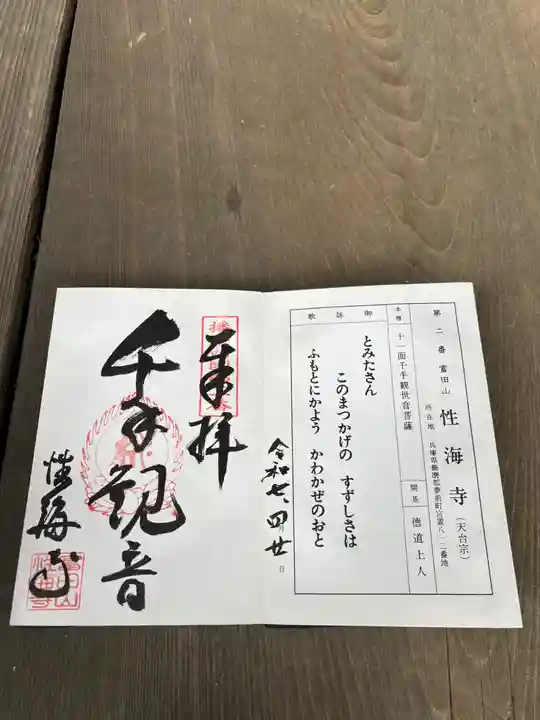 第二番 富田山 性海寺（天台宗）
所在地 兵庫県飾磨郡夢前町宮置八一二番地
本尊 十一面千手観世音菩薩
開基 徳道上人
御詠歌
とみたさん
このまつかげの すずしさは
ふもとにかよう かわかぜのおと
令和七、四廿日
奉拝
千手観音
性海寺